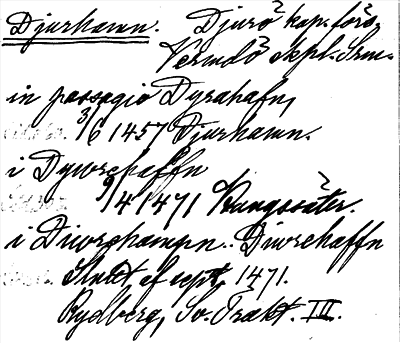 Djurhamn. Djurö kap. förs.
Vermdö skpl. Srm.
in passagio Dyrahafn,
3/6 1457 Djurhamn.
i Dywrehaffn
9/4 1471 Kungssäter.
i Diwrehampn. Diwrehaffn
Slutet af sept. 1471.
Rydberg, Sv. Trakt. III.